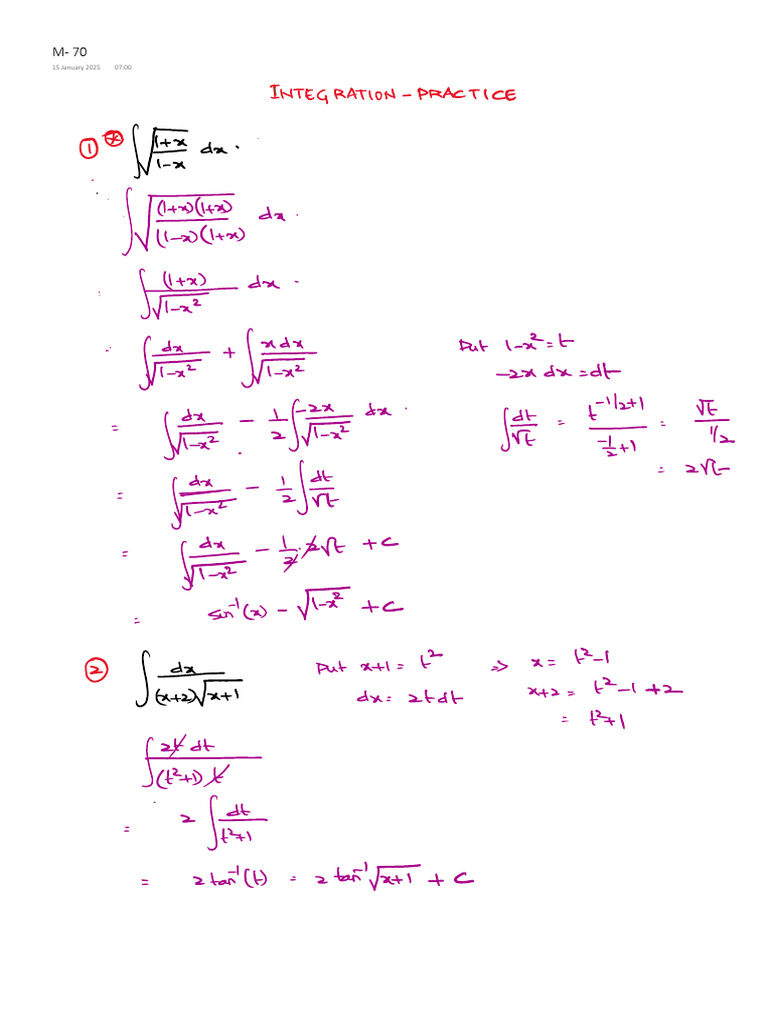 M- 70
15 January 2025 07:00
INTEGRATION - PRACTICE
① * ∫ √((1+x)/(1-x)) dx .
∫ √(((1+x)(1+x))/((1-x)(1+x))) dx .
∫ (1+x)/√(1-x²) dx .
∫ dx/√(1-x²) + ∫ x dx/√(1-x²) Put 1-x² = t
-2x dx = dt
= ∫ dx/√(1-x²) - 1/2 ∫ -2x/√(1-x²) dx . ∫ dt/√t = t^(-1/2+1)/(-1/2+1) = √t/(1/2)
= 2√t
= ∫ dx/√(1-x²) - 1/2 ∫ dt/√t
= ∫ dx/√(1-x²) - 1/2 · 2√t + c
= sin⁻¹(x) - √(1-x²) + c
② ∫ dx/((x+2)√(x+1)) Put x+1 = t² ⇒ x = t²-1
dx = 2t dt x+2 = t²-1+2
= t²+1
∫ 2t dt/((t²+1) t)
= 2 ∫ dt/(t²+1)
= 2 tan⁻¹(t) = 2 tan⁻¹ √(x+1) + c